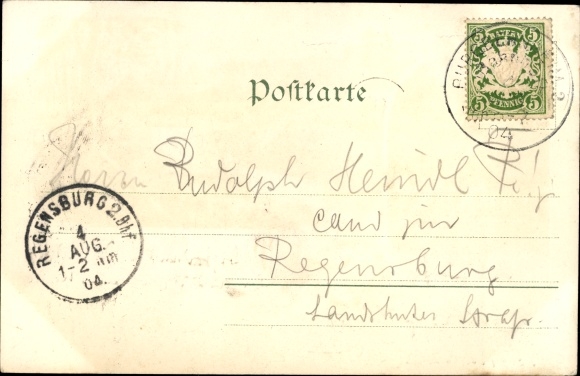 BAYERN
5 5
PFENNIG
04
Postkarte
Herrn Rudolph Heindl
cand jur
REGENSBURG 2. Bhf.
4
AUG.
1-2 Nm
04.
Regensburg
Landshuter Straße.